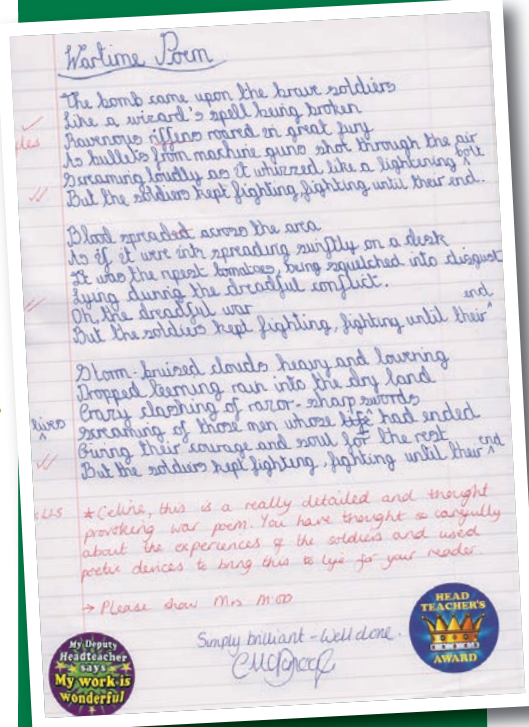 Wartime Poem
The bomb came upon the brave soldiers
Like a wizard's spell being broken
Ravenous riffins roared in great fury
As bullets from machine guns shot through the air
Screaming loudly as it whizzed like a lightening bolt
But the soldiers kept fighting fighting until their end.
Blood spreaded across the area
As if it were ink spreading swiftly on a desk
It was the ripest tomatoes, being squelched into disgust
Lying during the dreadful conflict.
Oh the dreadful war
But the soldiers kept fighting, fighting until their end
Storm-bruised clouds heavy and louring
Dropped teeming rain into the dry land
Crazy clashing of razor-sharp swords
lives
Screaming of those men whose life had ended
Giving their courage and soul for the rest
But the soldiers kept fighting, fighting until their end
* Celine, this is a really detailed and thought
provoking war poem. You have thought so carefully
about the experiences of the soldiers and used
poetic devices to bring this to life for your reader.
→ Please show Mrs
Simply brilliant - Well done.
My Deputy
Headteacher
says
My work is
wonderful
HEAD
TEACHER'S
AWARD